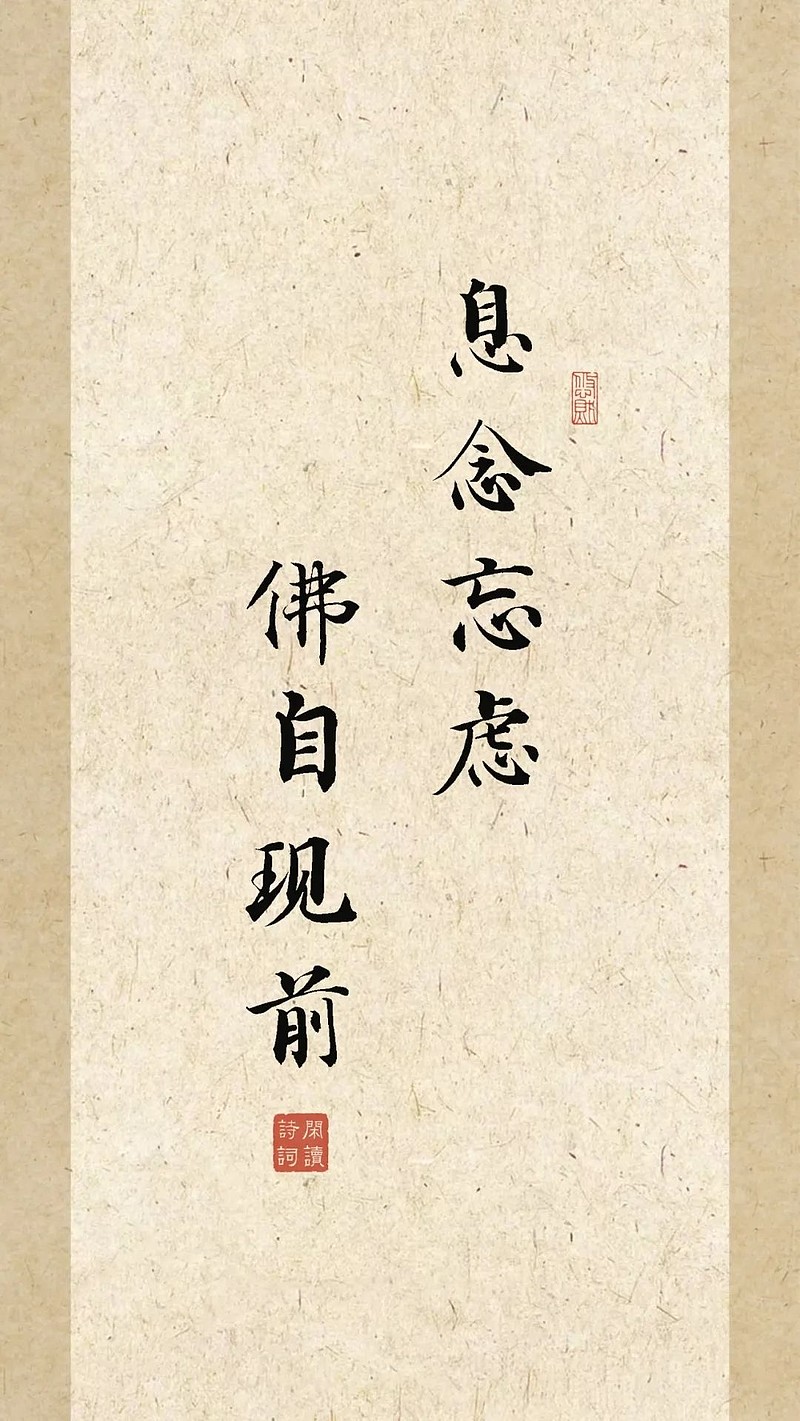 息念忘虑
佛自现前
閑讀
詩詞